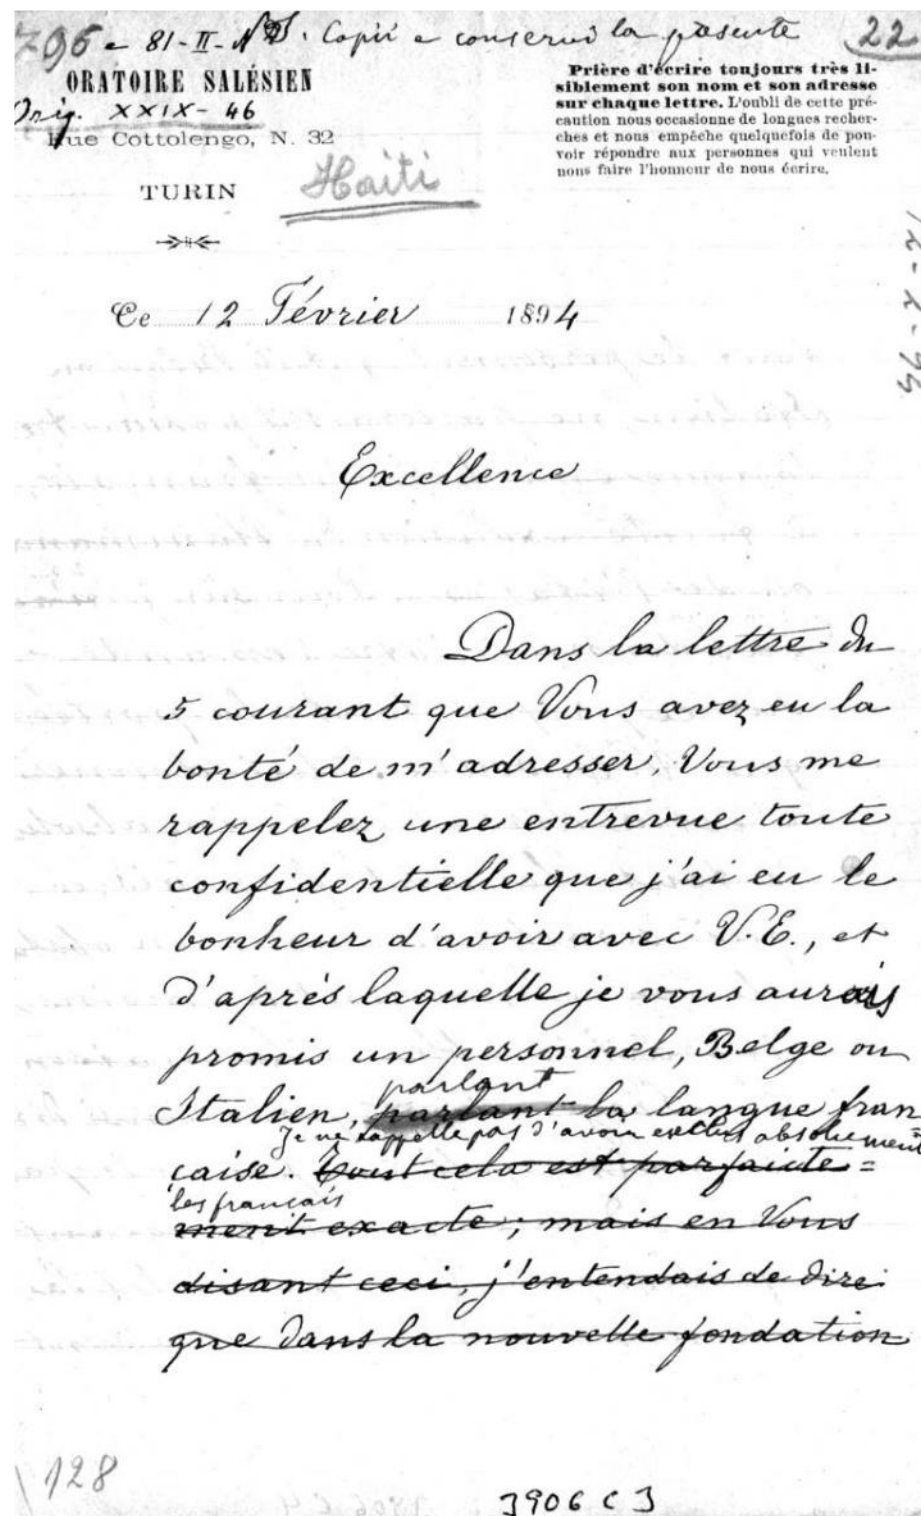 796 - 81-II- Copie a conservé la présente
22
ORATOIRE SALÉSIEN
Orig. XXIX - 46
Rue Cottolengo, N. 32
TURIN
Haiti
Prière d'écrire toujours très li-
siblement son nom et son adresse
sur chaque lettre. L'oubli de cette pré-
caution nous occasionne de longues recher-
ches et nous empêche quelquefois de pou-
voir répondre aux personnes qui veulent
nous faire l'honneur de nous écrire.
Ce 12 Février 1894
Excellence
Dans la lettre du
5 courant que Vous avez eu la
bonté de m'adresser, Vous me
rappelez une entrevue toute
confidentielle que j'ai eu le
bonheur d'avoir avec V.E., et
d'après laquelle je vous aurais
promis un personnel, Belge ou
parlant
Italien, parlant la langue fran
Je ne rappelle pas d'avoir exclus absolument
çaise. Tout cela est parfaite=
les français
ment exacte; mais en Vous
disant ceci, j'entendais de dire
que dans la nouvelle fondation
128
3906 C 3